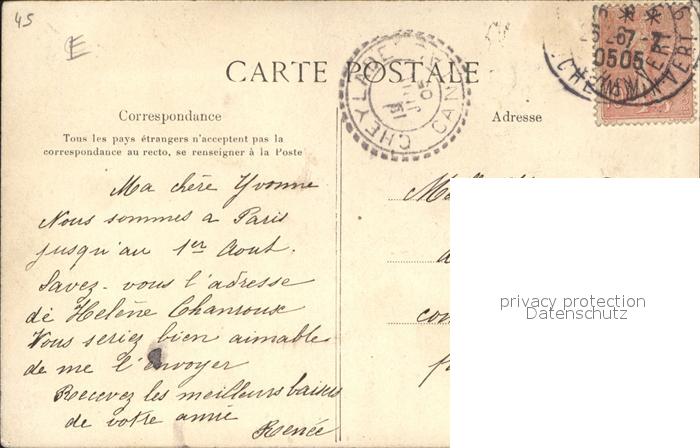 45
E
CARTE POSTALE
Correspondance
Tous les pays étrangers n'acceptent pas la
correspondance au recto, se renseigner à la Poste
Ma chère Yvonne
Nous sommes a Paris
jusqu'au 1er Aout.
Savez-vous l'adresse
de Helène Chanroux
Vous seriez bien aimable
de me l'envoyer
Recevez les meilleurs baisers
de votre amie
Renée
Adresse
privacy protection
Datenschutz